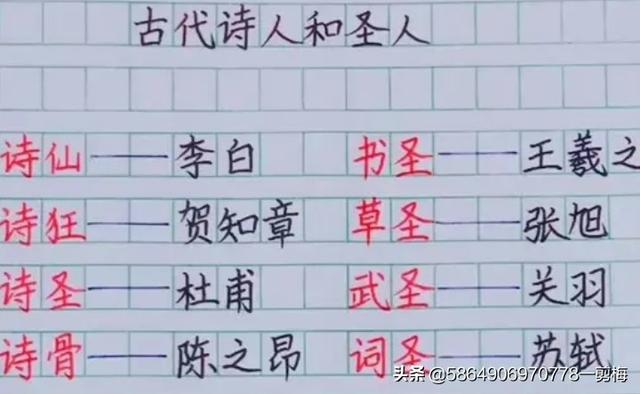 古代诗人和圣人
诗仙——李白 书圣——王羲之
诗狂——贺知章 草圣——张旭
诗圣——杜甫 武圣——关羽
诗骨——陈之昂 词圣——苏轼
头条 @5864906970778一剪梅